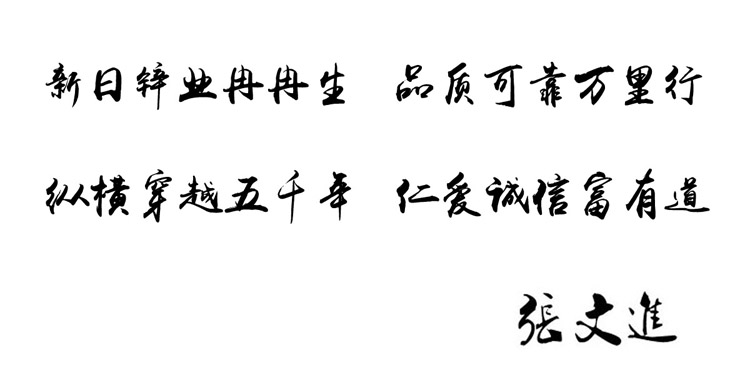 新日锌业冉冉生 品质可靠万里行
纵横穿越五千年 仁爱诚信富有道
張文進